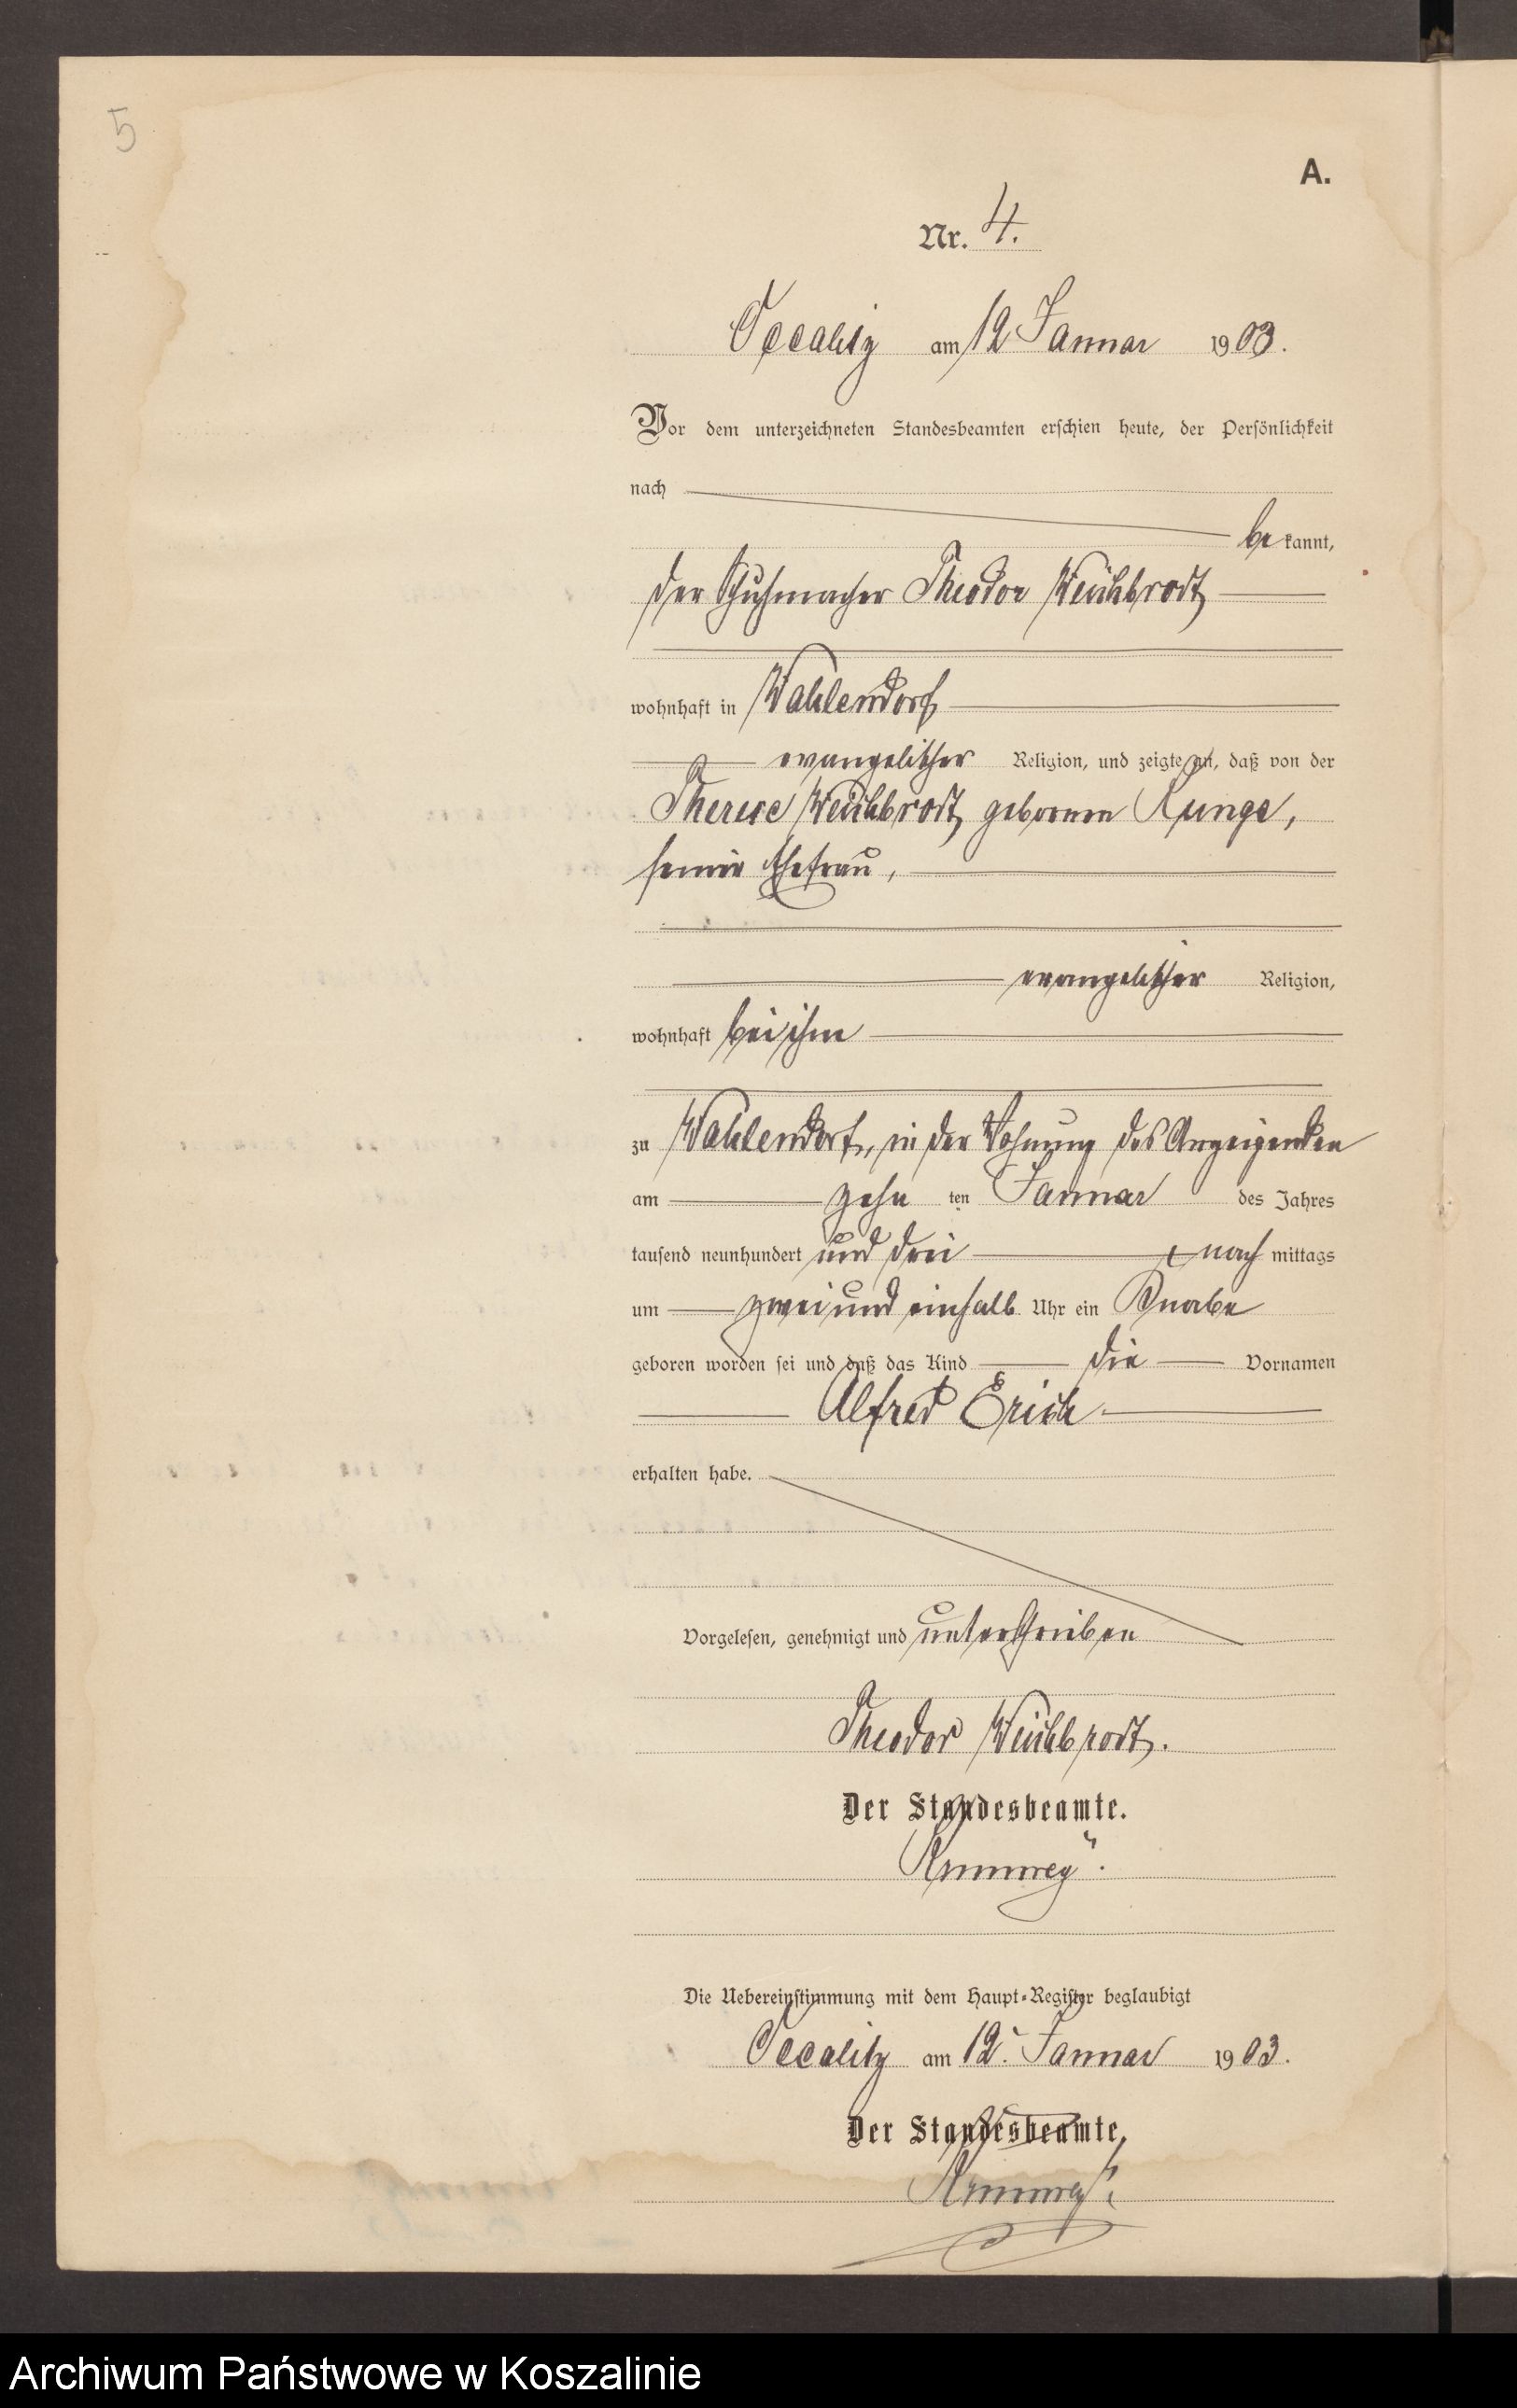 5
A.
Nr. 4.
Occalitz am 12 Januar 1903.
Vor dem unterzeichneten Standesbeamten erschien heute, der Persönlichkeit
nach
bekannt,
der Schuhmacher Theodor Weichbrodt
wohnhaft in Wahlendorf
evangelischer Religion, und zeigte an, daß von der
Therese Weichbrodt, geborenen Kunge,
seiner Ehefrau,
evangelischer Religion,
wohnhaft bei ihm
zu Wahlendorf, in der Wohnung des Anzeigenden
am zehn ten Januar des Jahres
tausend neunhundert und drei nach mittags
um zwei und einhalb Uhr ein Knabe
geboren worden sei und daß das Kind die Vornamen
Alfred Erich
erhalten habe.
Vorgelesen, genehmigt und unterschrieben
Theodor Weichbrodt.
Der Standesbeamte.
Die Uebereinstimmung mit dem Haupt-Register beglaubigt
Occalitz am 12. Januar 1903.
Der Standesbeamte,
Archiwum Państwowe w Koszalinie